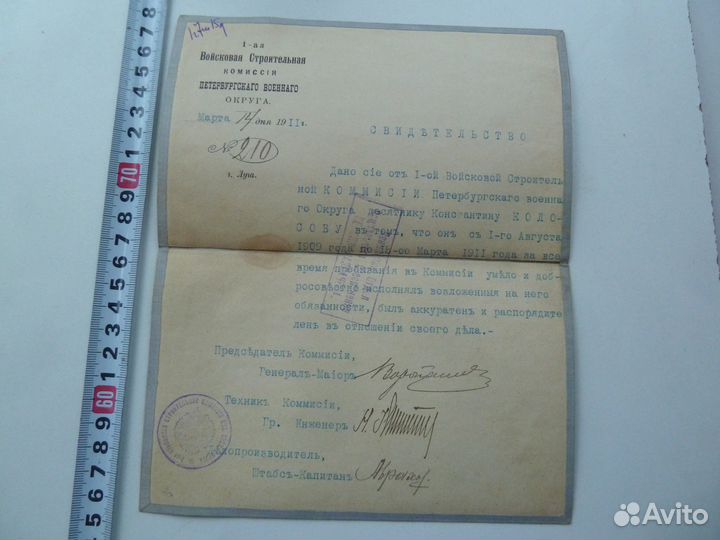 1-ая
Войсковая Строительная
КОМИССІЯ
ПЕТЕРБУРГСКАГО ВОЕННАГО
ОКРУГА.
Марта 14 дня 1911 г.
№ 210
г. Луга.
СВИДѢТЕЛЬСТВО
Дано сіе отъ I-ой Войсковой Строитель
ной КОМИСІИ Петербургскаго военна
го Округа десятнику Константину КОЛО-
СОВУ въ томъ, что онъ съ I-го Августа
1909 года по 15-ое Марта 1911 года за все
время пребыванія въ Комиссіи умѣло и доб-
росовѣстно исполнялъ возложенныя на него
обязанности, былъ аккуратенъ и распорядите
ленъ въ отношеніи своего дѣла.-
Предсѣдатель Коммисіи,
Генералъ-Маіоръ
Техникъ Коммисіи,
Гр. Инженеръ
лопроизводитель,
Штабсъ-Капитанъ
60 1 2 3 4 5 6 7 8 9 70 1 2 3 4 5 6 7 8
Avito